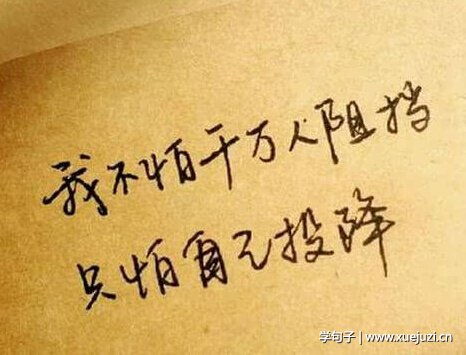 我不怕千万人阻挡
只怕自己投降
学句子 | www.xuejuzi.cn